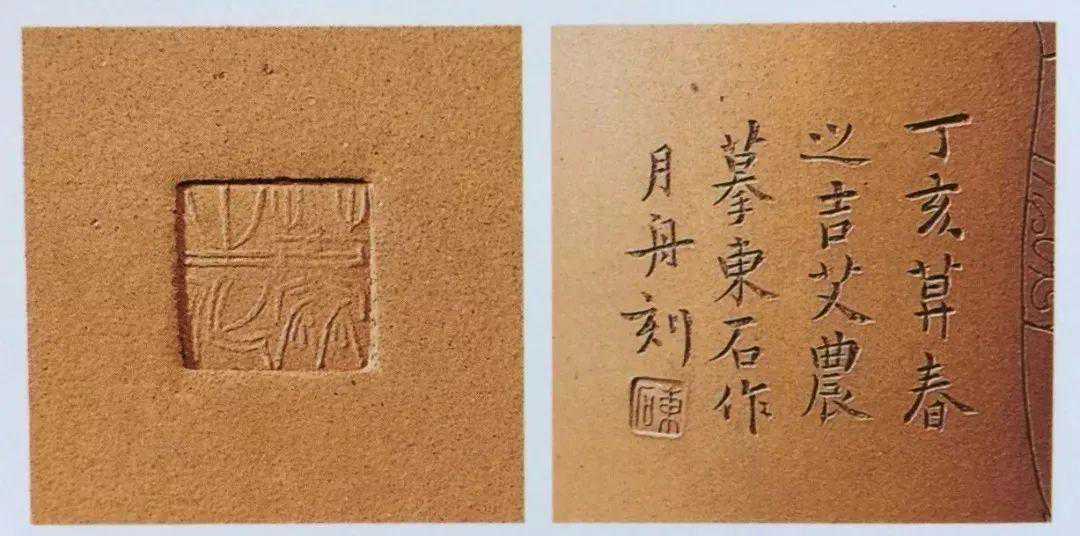 丁亥莫春
之吉艾農
摹東石作
月舟刻
東石